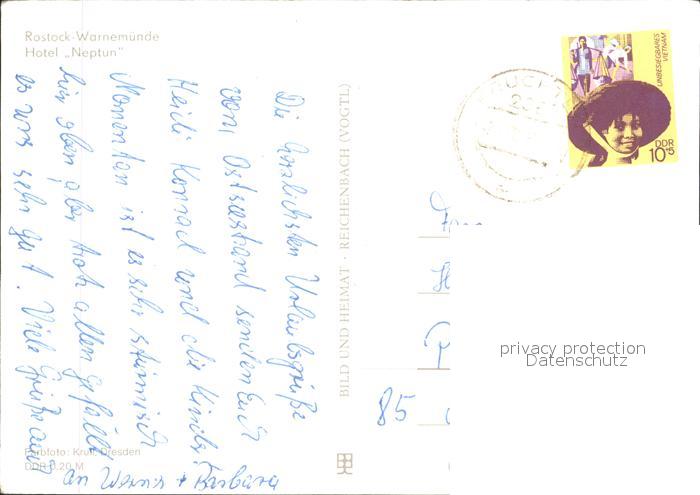 Rostock-Warnemünde
Hotel „Neptun“
Die herzlichsten Urlaubsgrüße
vom Ostseestrand senden Euch
Heidi Konrad und die Kinder!
Momentan ist es sehr stürmisch
hier oben, aber trotz allem gefällt
es uns sehr gut. Viele Grüße auch
an Werner + Barbara
Farbfoto: Dresden
DDR 0.20 M
BILD UND HEIMAT · REICHENBACH (VOGTL)
UNBESIEGBARES
VIETNAM
DDR
10+5
85
privacy protection
Datenschutz